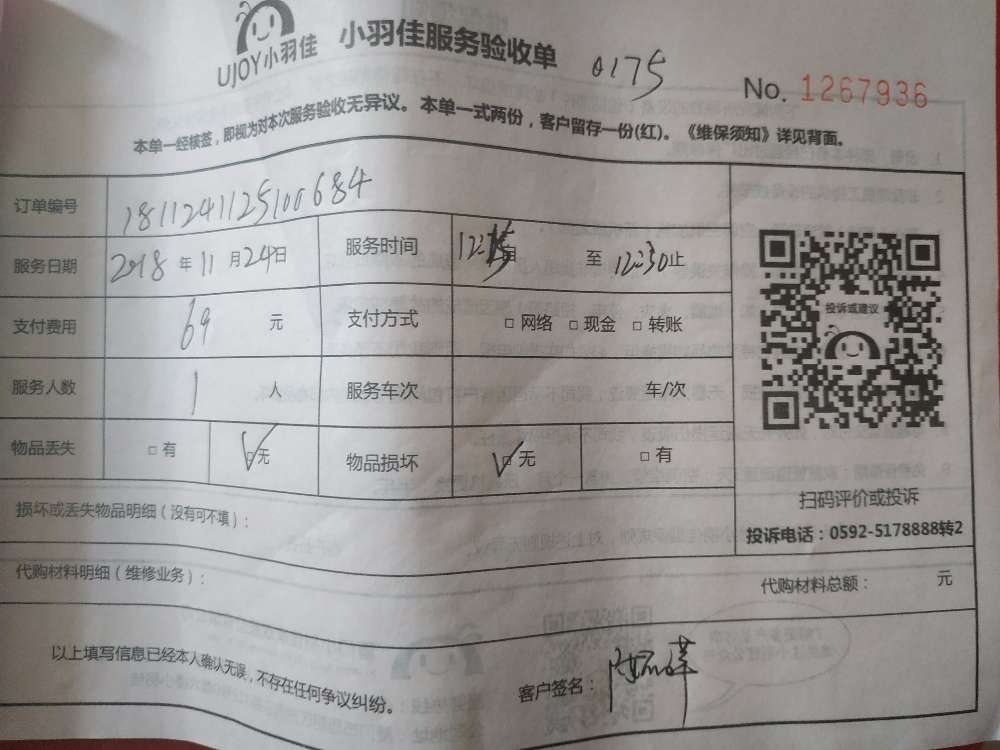 UJOY小羽佳
小羽佳服务验收单
0175
No. 1267936
本单一经核签，即视为对本次服务验收无异议。本单一式两份，客户留存一份(红)。《维保须知》详见背面。
订单编号 1811241125100684
服务日期 2018 年 11 月 24 日 服务时间 12:15 自 至 12:30 止
支付费用 69 元 支付方式 □ 网络 □ 现金 □ 转账
服务人数 1 人 服务车次 车/次
物品丢失 □ 有 ☑ 无 物品损坏 ☑ 无 □ 有
投诉或建议
扫码评价或投诉
投诉电话：0592-5178888转2
损坏或丢失物品明细（没有可不填）：
代购材料明细（维修业务）： 代购材料总额： 元
以上填写信息已经本人确认无误，不存在任何争议纠纷。 客户签名：